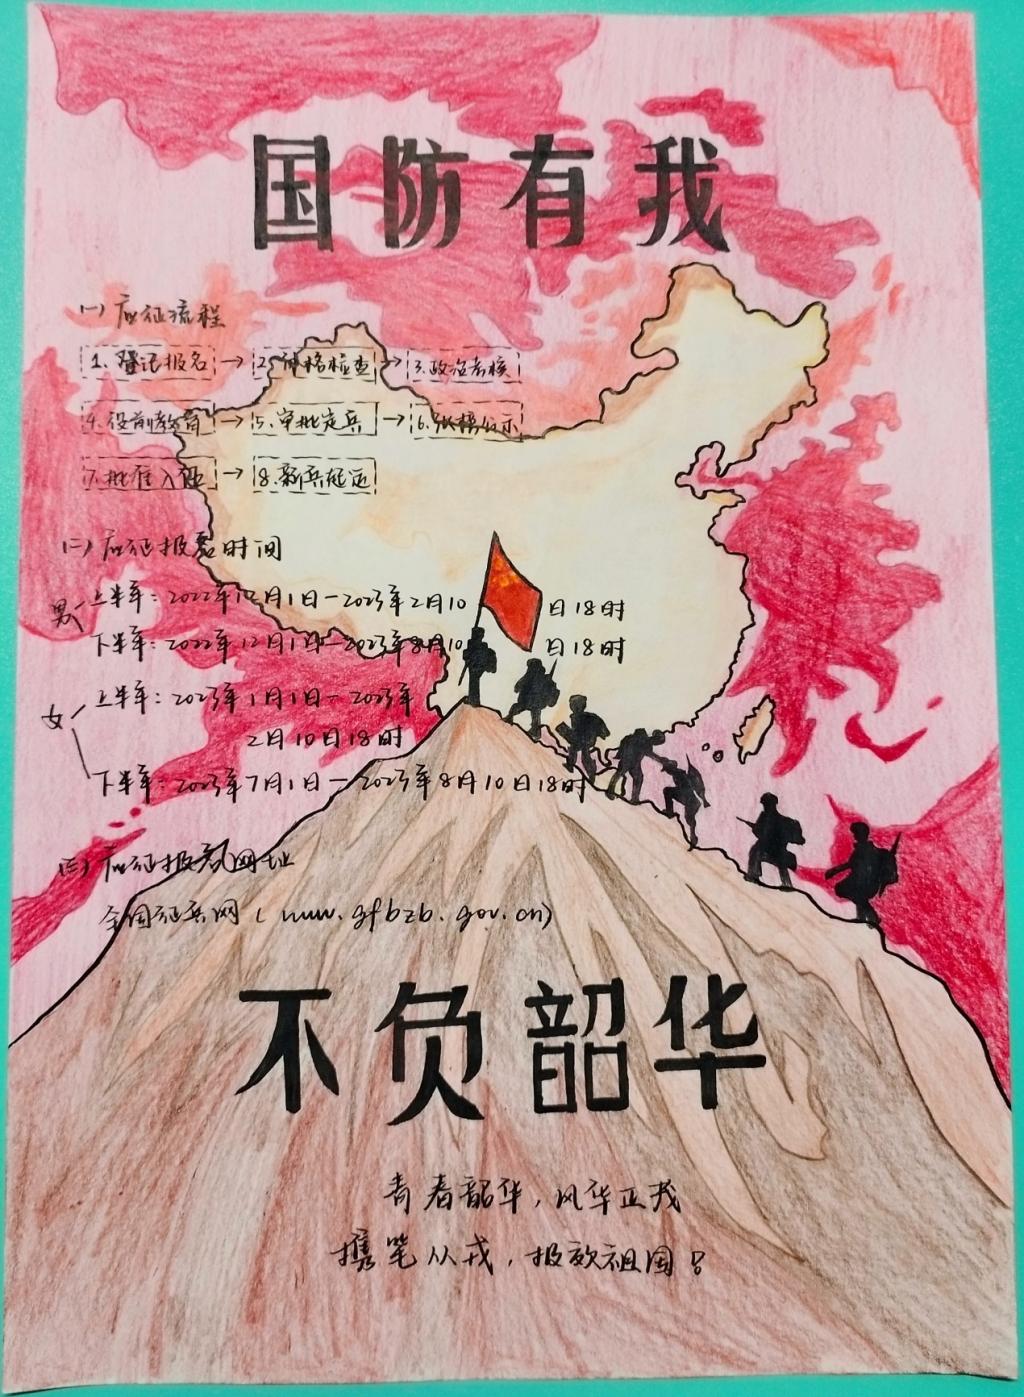 国防有我
(一) 应征流程
1.登记报名 → 2.体格检查 → 3.政治考核
4.役前教育 → 5.审批定兵 → 6.张榜公示
7.批准入伍 → 8.新兵起运
(二) 应征报名时间
男 上半年：2022年12月1日—2023年2月10日18时
下半年：2022年12月1日—2023年8月10日18时
女 上半年：2023年1月1日—2023年
2月10日18时
下半年：2023年7月1日—2023年8月10日18时
(三) 应征报名网址
全国征兵网 (www.gfbzb.gov.cn)
不负韶华
青春韶华，风华正茂
携笔从戎，报效祖国！